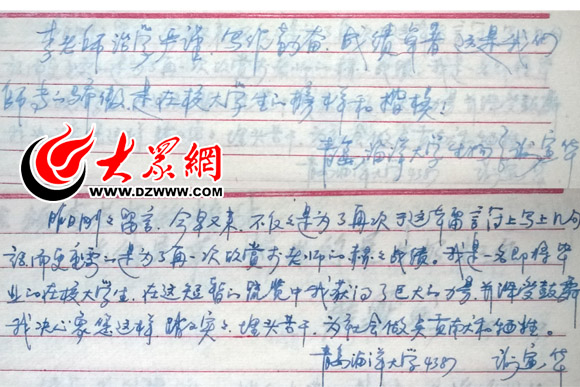 李老师治学严谨,写作勤奋,成绩卓著,这是我们
师专的骄傲,是在校大学生的榜样和楷模!
青岛海洋大学生物系 谢寅华
大众網
WWW.DZWWW.COM
昨日刚之留言,今早又来,不仅仅是为了再次于这本留言簿上写上几句
话,而更重要的是为了再一次欣赏李老师的样之成绩。我是一名即将毕
业的在校大学生,在这短暂的浏览中我获得了巨大的力量,并深受鼓舞
我决心象您这样踏踏实实,埋头苦干,为社会做出贡献和牺牲。
青岛海洋大学 谢寅华